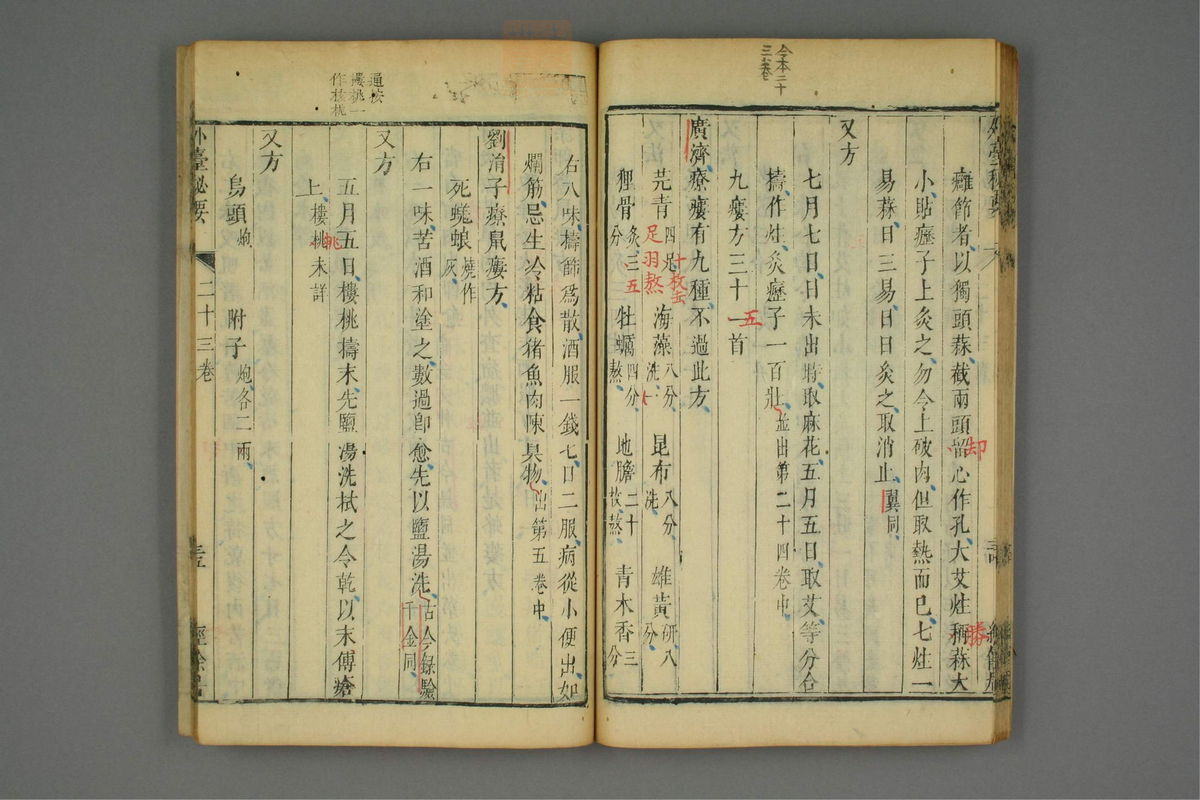 今本二十
三卷
癰節者以獨頭蒜截兩頭留心作孔大艾炷稱蒜大
却
勝
小貼癧子上灸之勿令上破肉但取熱而已七炷一
易蒜日三易日日灸之取消止翼同
又方
七月七日日未出時取麻花五月五日取艾等分合
擣作炷灸癧子一百壯並出第二十四卷中
九瘻方三十一首
五
廣濟療瘻有九種不過此方
芫青四 海藻八分洗 昆布八分洗 雄黃研八分
十枚去
足羽熬
狸骨灸三分 牡蠣四分熬 地膽二十枚熬 青木香三分
五
右八味擣篩為散酒服一錢七日二服病從小便出如
爛筋忌生冷粘食猪魚肉陳臭物出第五卷中
劉涓子療鼠瘻方
死蜣蜋燒作灰
右一味苦酒和塗之數過即愈先以鹽湯洗古今錄驗千金同
又方
五月五日樓桃擣末先鹽湯洗拭之令乾以末傅瘡
上樓桃未詳
桃
通按
櫻桃一
作核桃
又方
烏頭炮 附子炮各二兩
外臺秘要 二十三卷